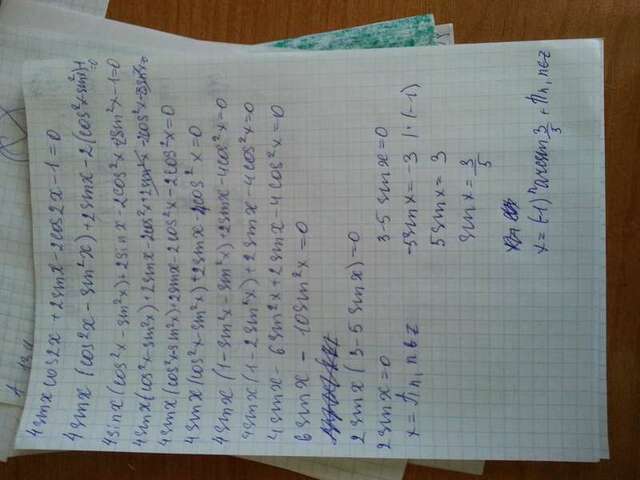 4sinx cos2x + 2sinx - 2cos2x - 1 = 0
4sinx (cos²x - sin²x) + 2sinx - 2(cos²x - sin²x) - 1 = 0
4sinx (cos²x - sin²x) + 2sinx - 2cos²x + 2sin²x - 1 = 0
4sinx (cos²x - sin²x) + 2sinx - 2cos²x
4sinx (cos²x - sin²x) + 2sinx - 2cos²x - 2cos²x = 0
4sinx (cos²x - sin²x) + 2sinx - 4cos²x = 0
4sinx (1 - sin²x - sin²x) + 2sinx - 4cos²x = 0
4sinx (1 - 2sin²x) + 2sinx - 4cos²x = 0
4sinx - 6sin²x + 2sinx - 4cos²x = 0
6sinx - 10sin²x = 0
2sinx (3 - 5sinx) = 0
2sinx = 0 3 - 5sinx = 0
x = πn, n∈Z -5sinx = -3 | · (-1)
5sinx = 3
sinx = 3/5
x = (-1)ⁿ arcsin 3/5 + πn, n∈Z